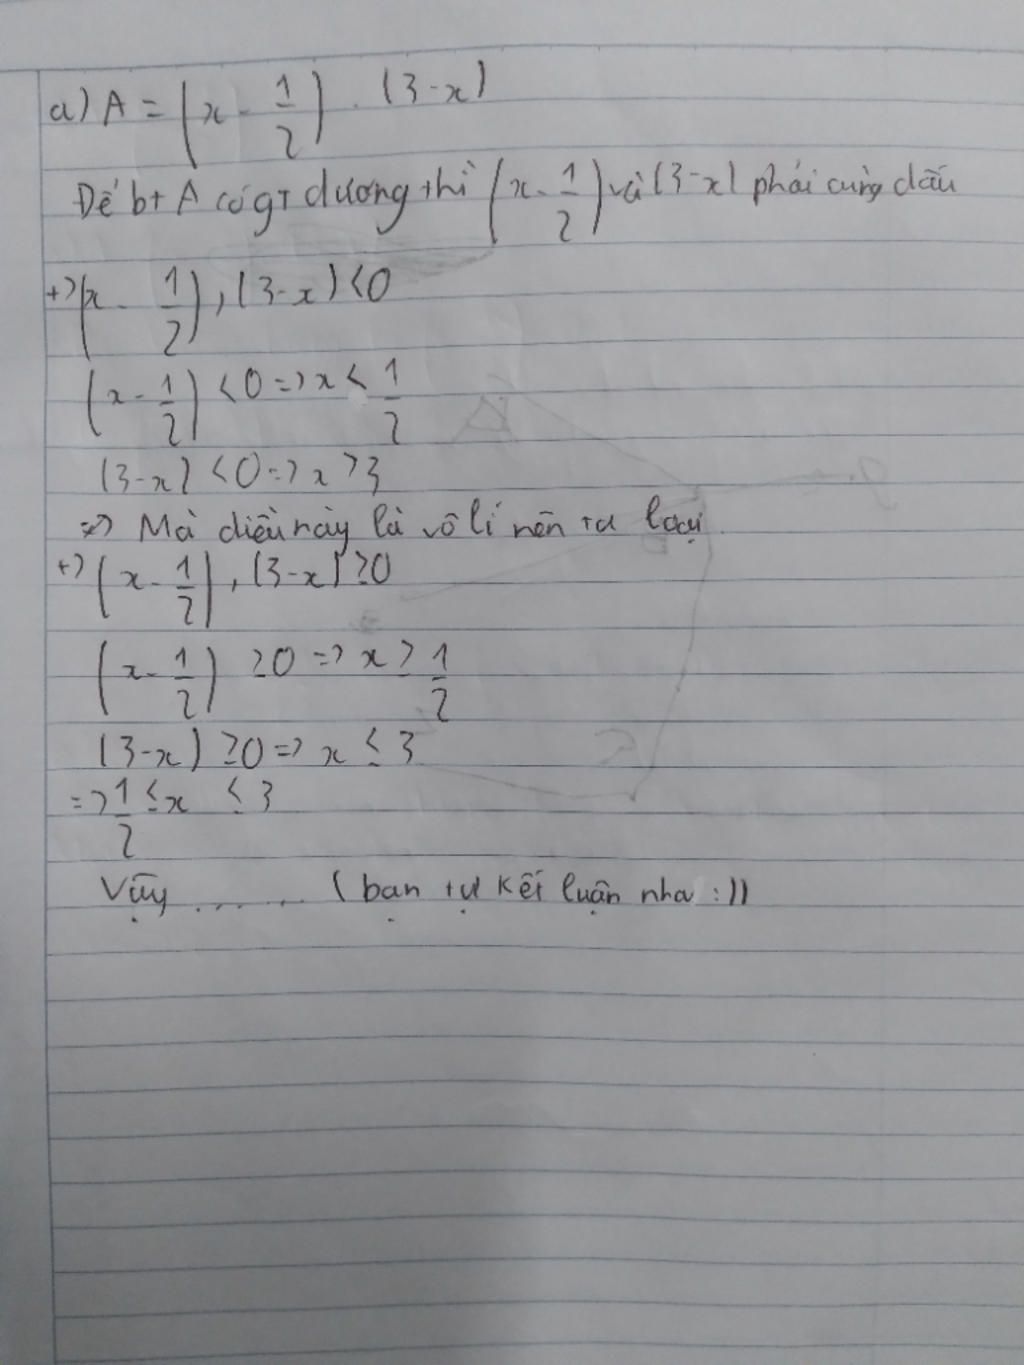 a) A = (x - 1/2) . (3-x)
Để bt A có gT dương thì (x - 1/2) và (3-x) phải cùng dấu
+) (x - 1/2), (3-x) < 0
(x - 1/2) < 0 => x < 1/2
(3-x) < 0 => x > 3
=> Mà điều này là vô lí nên ta loại
+) (x - 1/2), (3-x) ≥ 0
(x - 1/2) ≥ 0 => x ≥ 1/2
(3-x) ≥ 0 => x ≤ 3
=> 1/2 ≤ x ≤ 3
Vậy ....... (bạn tự kết luận nha :))